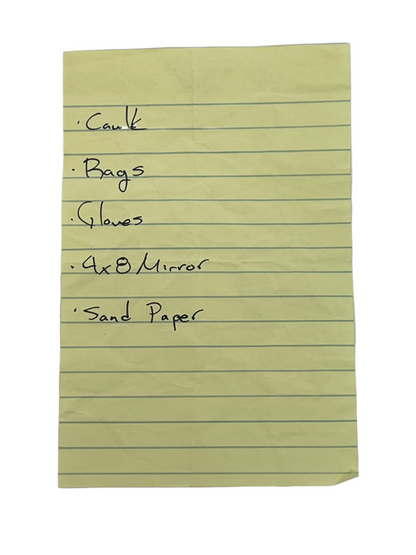 · Caulk
· Rags
· Gloves
· 4x8 Mirror
· Sand Paper